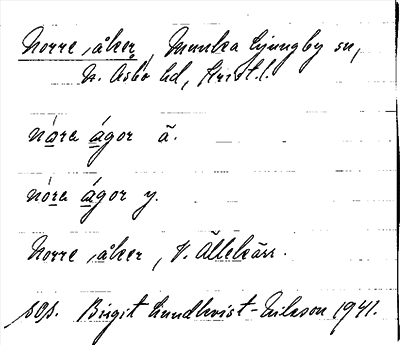 Norre åker, Munka Ljungby sn,
N. Åsbo hd, Krist. l.
nára ágor ã.
nóra ágor y.
Norre åker, V. Ällekärr.
sos. Birgit Lundkvist-Nilsson 1941.